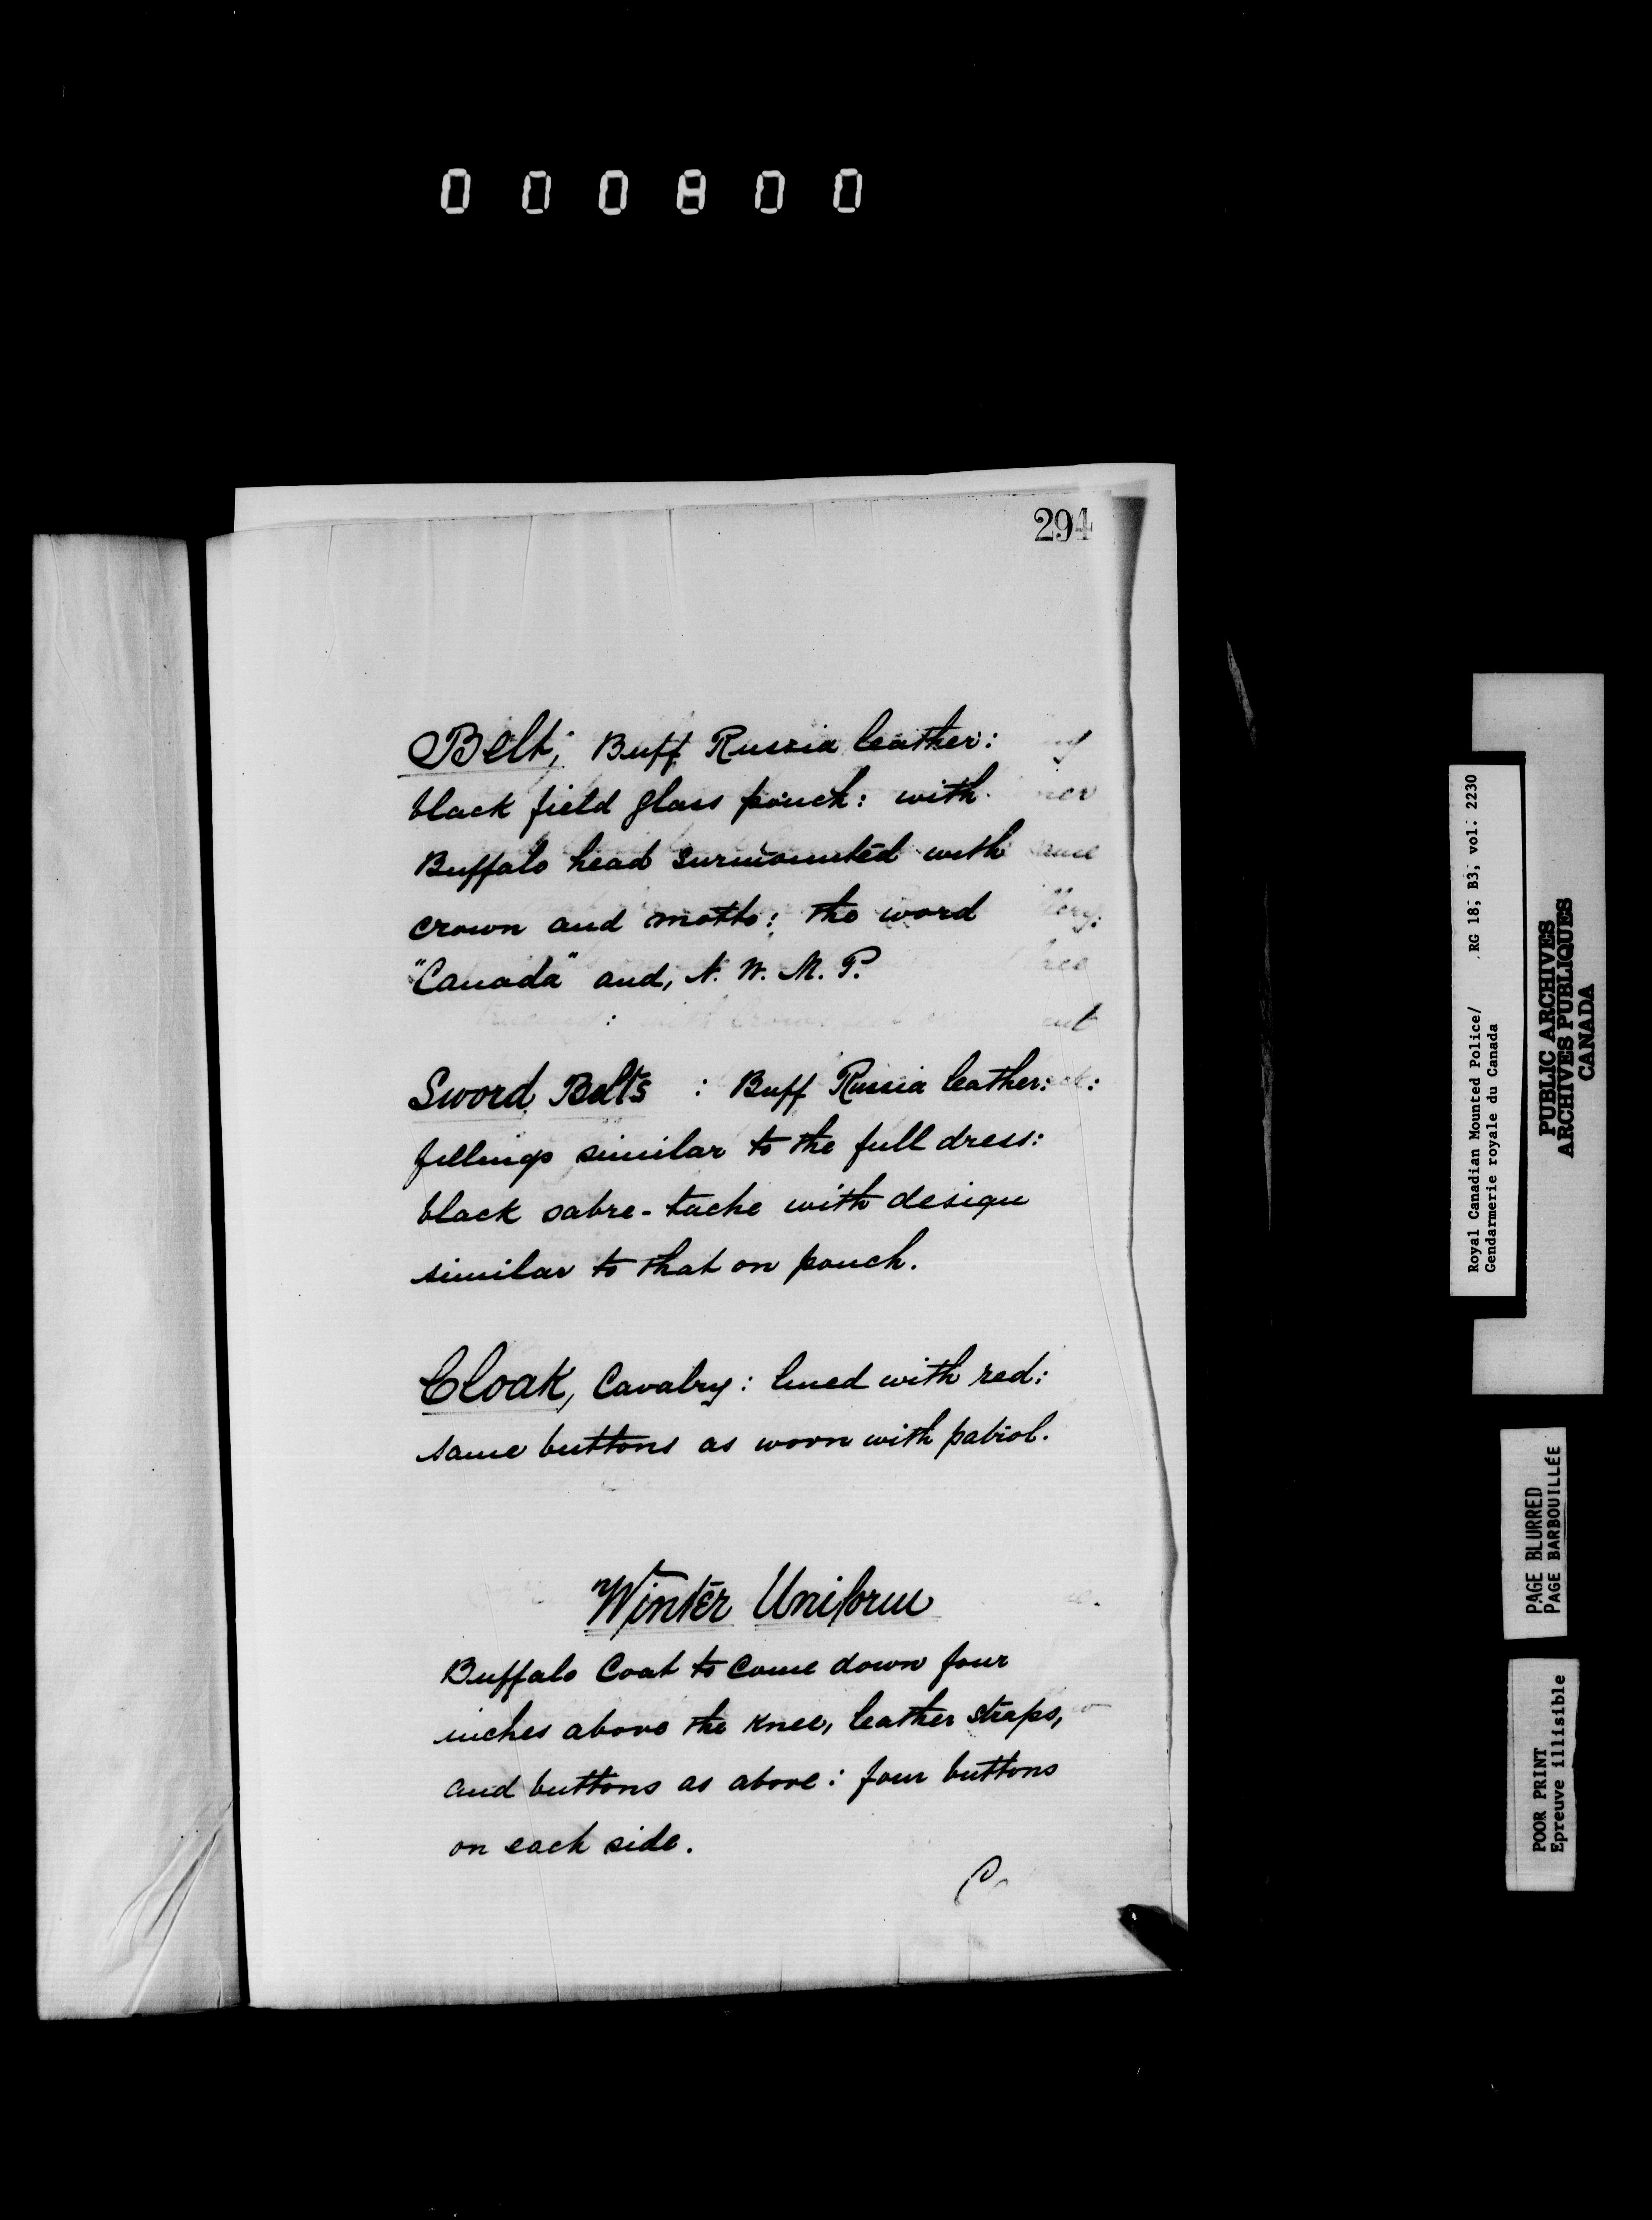 000800
294
Belt; Buff Russia leather:
black field glass pouch: with
Buffalo head surmounted with
crown and motto: the word
"Canada" and, N. W. M. P.
Sword Belts : Buff Russia leather:
fillings similar to the full dress:
black sabre-tache with design
similar to that on pouch.
Cloak, Cavalry: lined with red:
same buttons as worn with patrol.
Winter Uniform
Buffalo Coat to come down four
inches above the knee, leather straps,
and buttons as above: four buttons
on each side.
Royal Canadian Mounted Police/ RG 18, B3, vol. 2230
Gendarmerie royale du Canada
PUBLIC ARCHIVES
ARCHIVES PUBLIQUES
CANADA
PAGE BLURRED
PAGE BARBOUILLÉE
POOR PRINT
Epreuve illisible